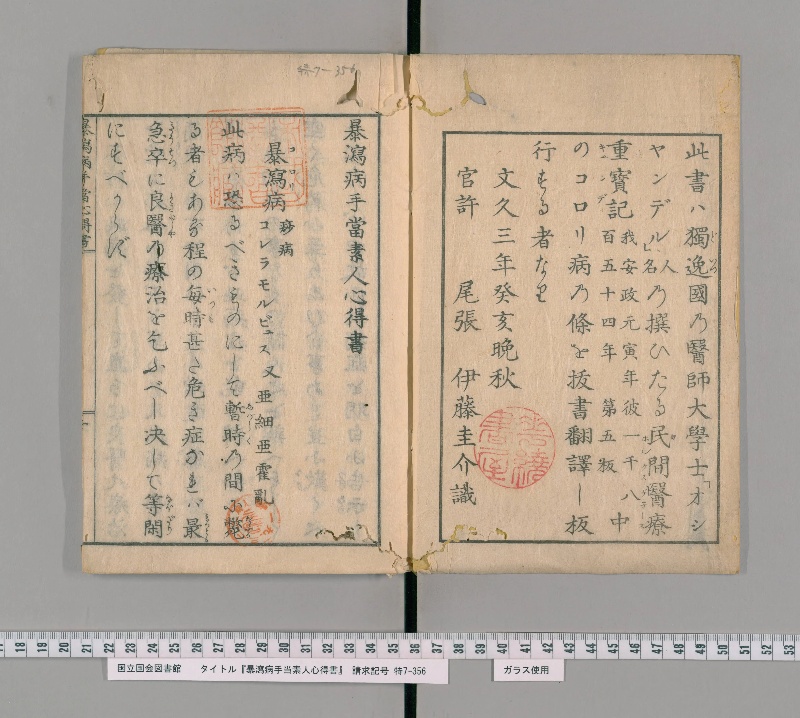 此書ハ獨逸國乃醫師大學士「オシ
ヤンデル」人名乃撰ひたる民間醫療
重寶記我安政元寅年彼一千八百五十四年第五板中
のコロリ病乃條を抜書翻譯し板
行する者なり
文久三年癸亥晩秋
官許 尾張 伊藤圭介識
特7-356
暴瀉病手當素人心得書
暴瀉病 コロリ 痧病
コレラモルビュス 又 亜細亜霍亂
此病ハ恐るべきものにして暫時の間に斃
る者もあり程の毎時甚だ危き症なれバ最
急卒に良醫乃療治を乞ふべし決して等閑
にすべからず
暴瀉病手當心得書
国立国会図書館 タイトル『暴瀉病手当素人心得書』 請求記号 特7-356 ガラス使用